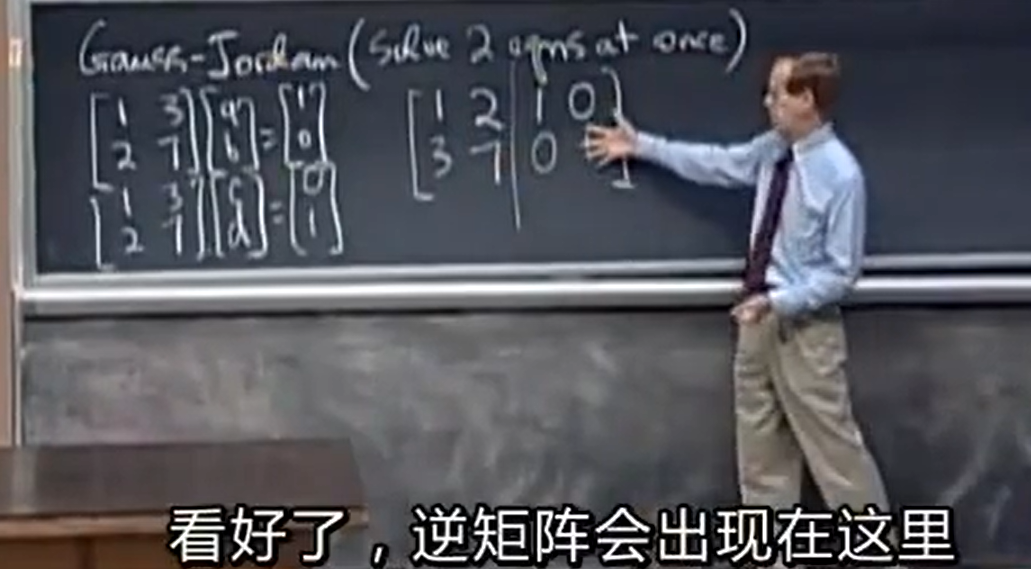 Gauss-Jordan (solve 2 eqns at once)
[1 3] [a] = [1]
[2 7] [b] = [0]
[1 3] [c] = [0]
[2 7] [d] = [1]
[1 2 | 1 0]
[3 7 | 0 1]
看好了，逆矩阵会出现在这里